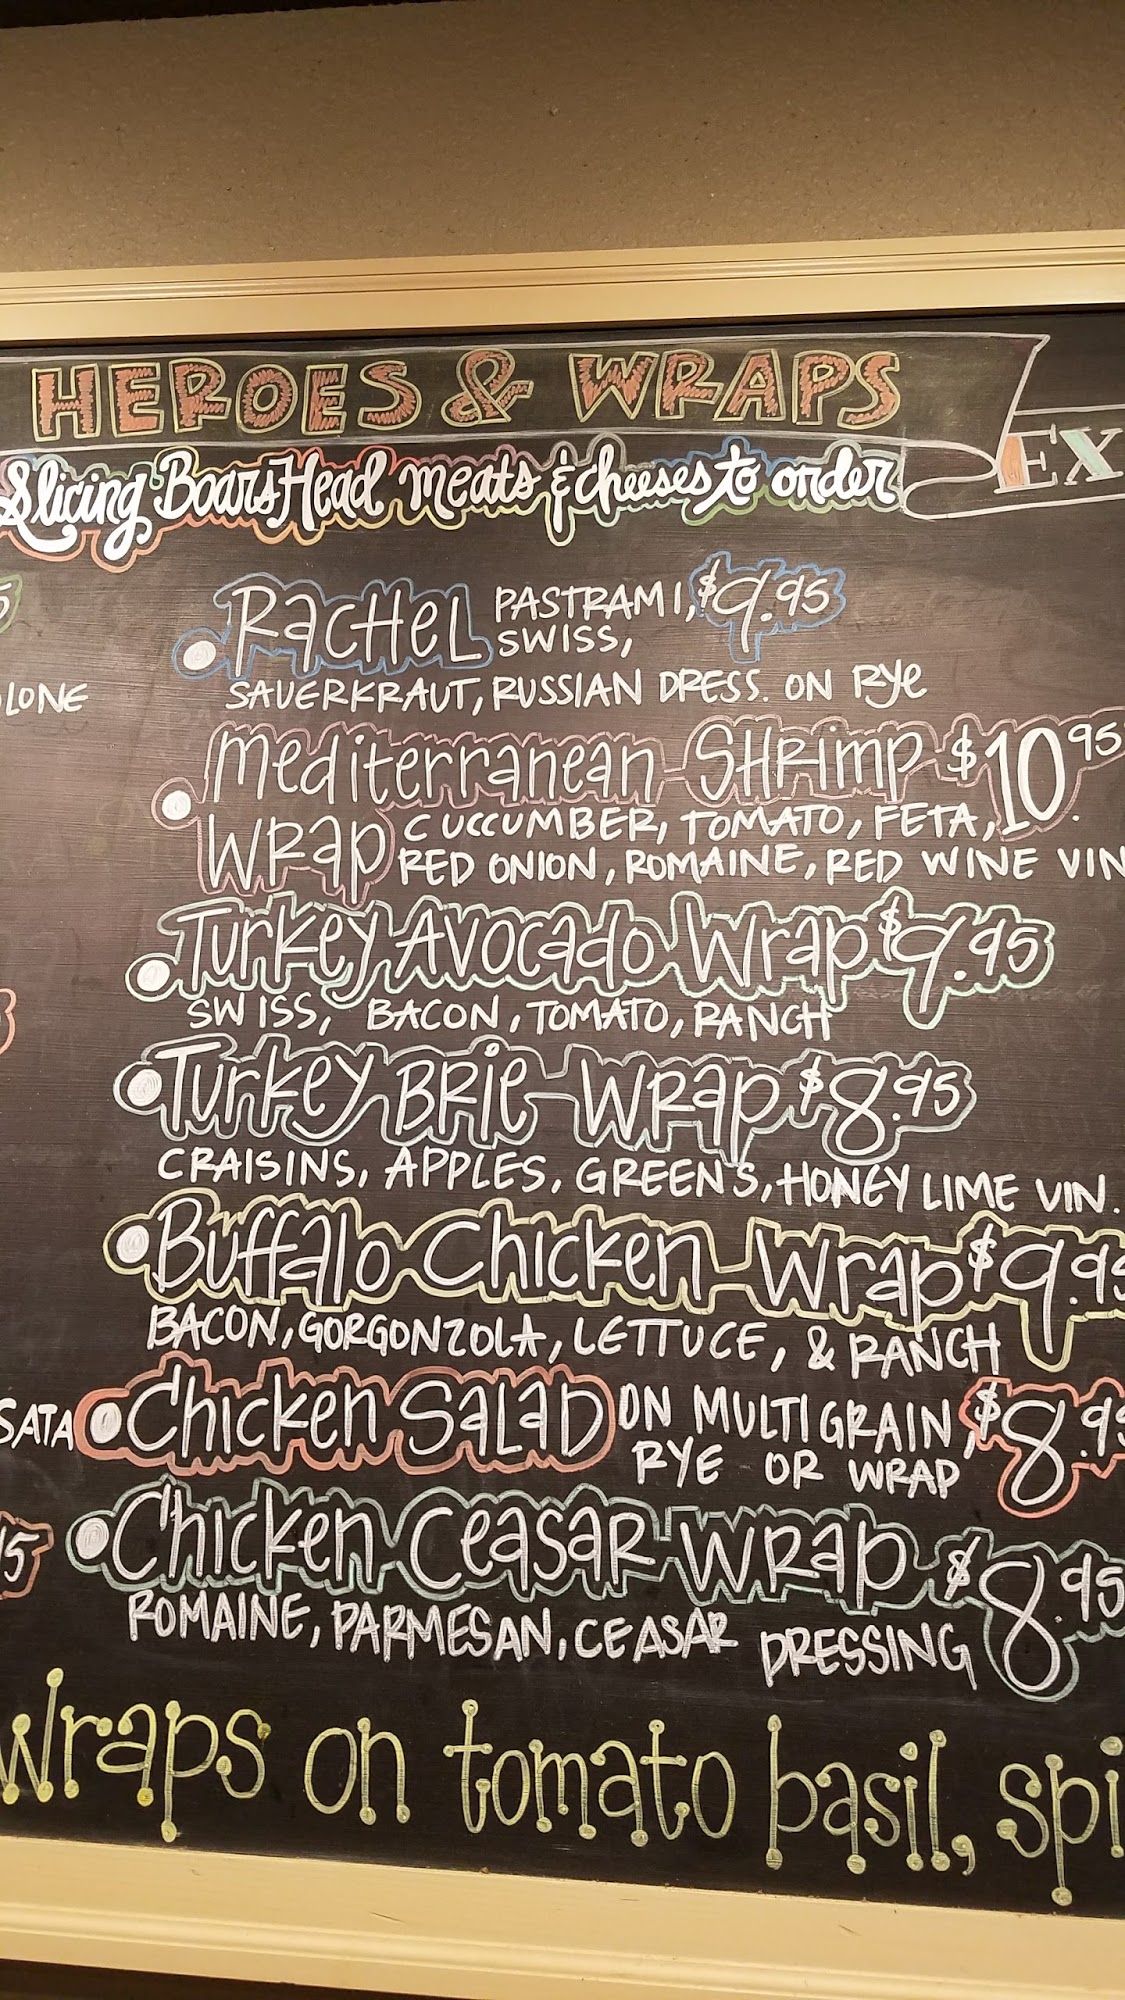 HEROES & WRAPS
EX
Slicing Boars Head meats & cheeses to order
RACHEL PASTRAMI, $9.95
SWISS,
SAUERKRAUT, RUSSIAN DRESS. ON RYe
LONE
Mediterranean SHRimp $10.95
WRap CUCCUMBER, TOMATO, FETA,
RED ONION, ROMAINE, RED WINE VIN
Turkey Avocado Wrap $9.95
SWISS, BACON, TOMATO, RANCH
Turkey BRie WRap $8.95
CRAISINS, APPLES, GREENS, HONEY LIME VIN.
Buffalo Chicken Wrap $9.95
BACON, GORGONZOLA, LETTUCE, & RANCH
SATA Chicken SALAD ON MULTIGRAIN, $8.95
RYE OR WRAP
Chicken CeasAR WRap $8.95
ROMAINE, PARMESAN, CEASAR DRESSING
wraps on tomato basil, spi